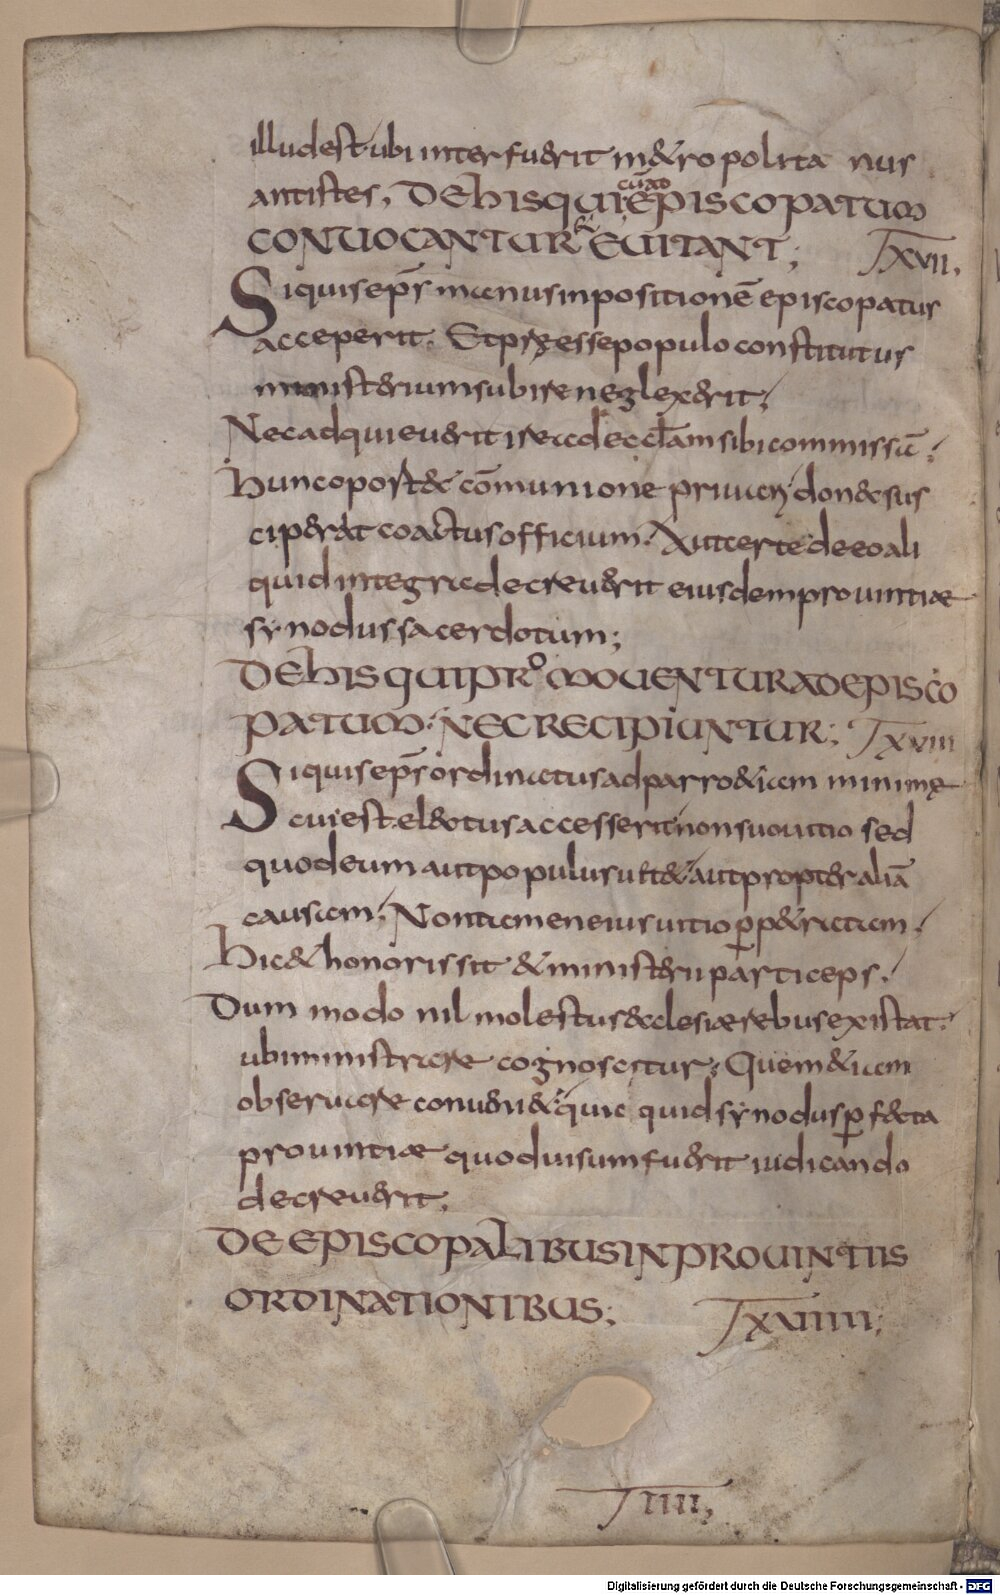 illud est ubi interfuerit metropolita nus
antistes, DE his qui cū ad EPISCOPATUM
CONVOCANTUR & EVITANT; T XVII.
Si quis ep̄s manus inpositionē episcopatus
acceperit. Et pręesse populo constitutus
ministerium subire neglexerit;
Nec adquieverit ire ad eccl̄am sibi commissā;
hunc oportet cōmunione privari donec sus
cipiat coactus officium. Aut certe de eo ali
quid integra decreverit eiusdem provintiae
synodus sacerdotum;
DE his QUI PROMOVENTUR AD EPISCO
PATUM. NEC RECIPIUNTUR; T XVIII
Si quis ep̄s ordinatus ad parrochiam minimę
cui est electus accesserit non suo vitio sed
quod eum aut populus vitet aut propter aliā
causam; Non tamen eius vitio perpetratam;
hic et honoris sit et ministerii particeps.
Dum modo nil molestus ecclesiae rebus existat.
ubi ministrare cognoscitur; Quem etiam
observare conveniet quic quid synodus perfecta
provintiae quod visum fuerit iudicando
decreverit;
DE EPISCOPALIBUS IN PROVINTIIS
ORDINATIONIBUS; T XVIIII;
T IIII,
Digitalisierung gefördert durch die Deutsche Forschungsgemeinschaft - DFG